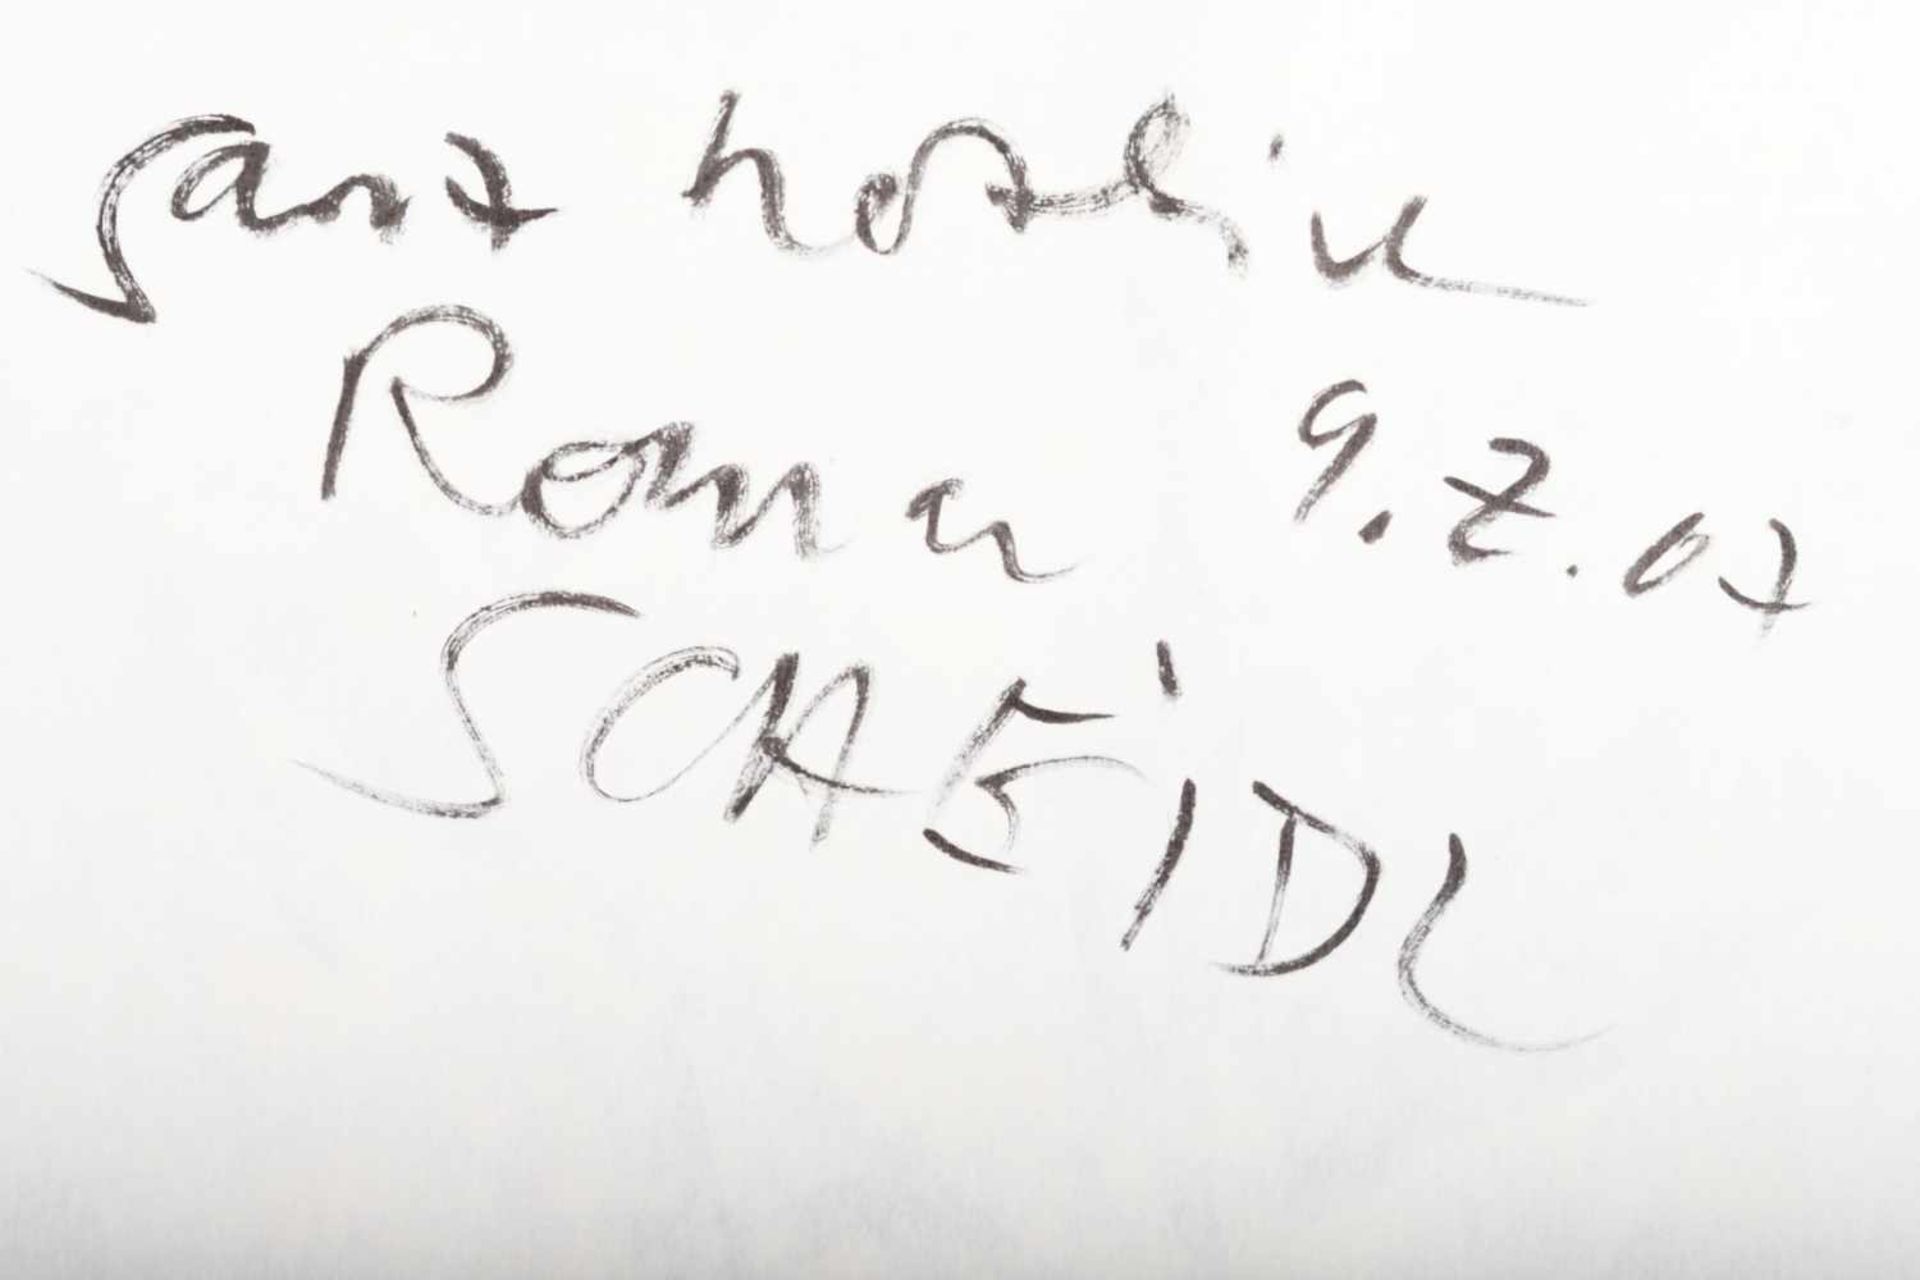 ganz herzlich
Roman 9.2.07
SCHEIDL